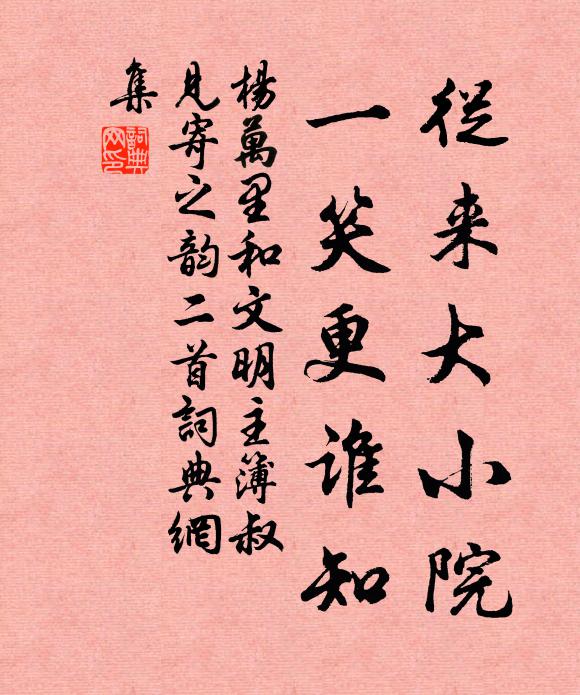 從来大小院
一笑更谁知
楊萬里和文明主簿叔
見寄之韵二首詞典網
集
詞典
网印